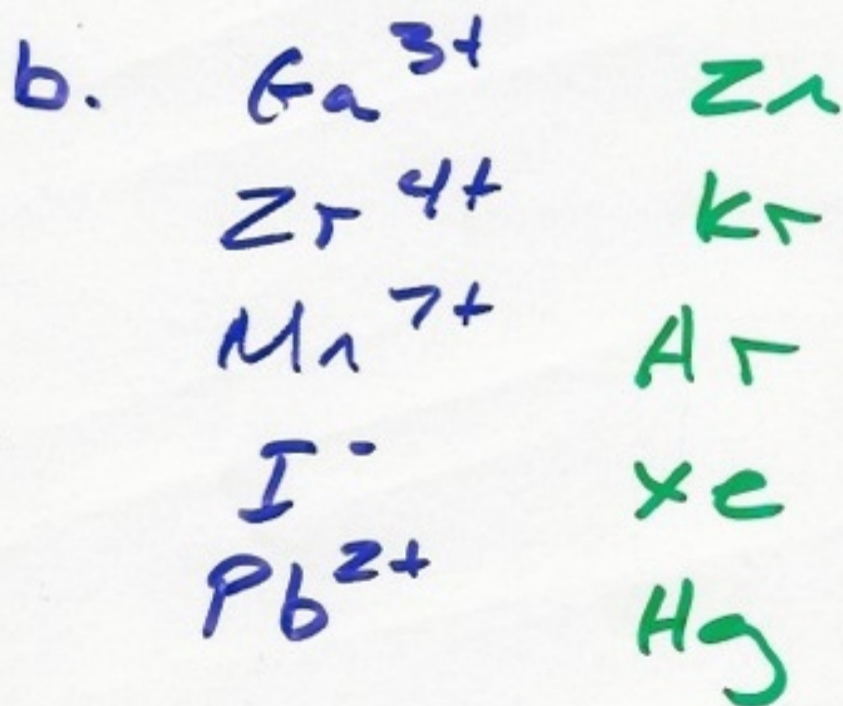 b. Ga³⁺ Zn
Zr⁴⁺ Kr
Mn⁷⁺ Ar
I⁻ Xe
Pb²⁺ Hg